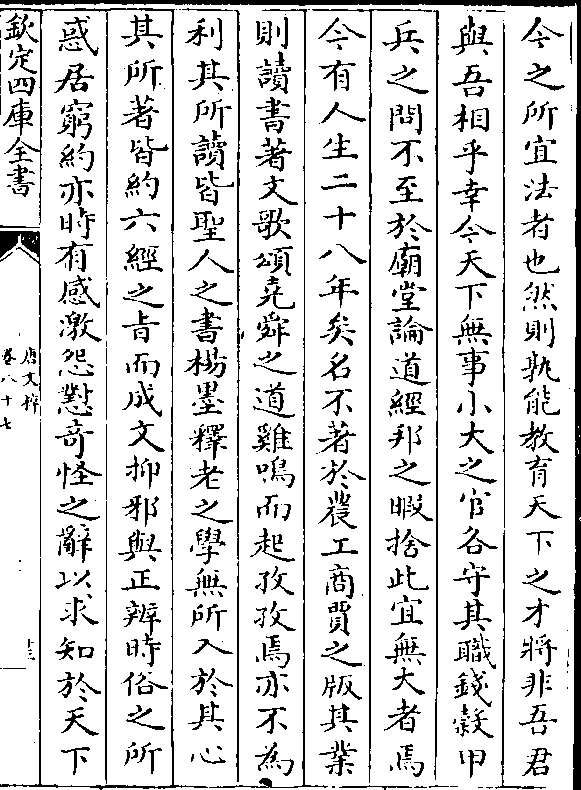 今之所宜法者也然則孰能教育天下之才將非吾君
與吾相乎幸今天下無事小大之官各守其職錢穀甲
兵之問不至於廟堂論道經邦之暇捨此宜無大者焉
今有人生二十八年矣名不著於農工商賈之版其業
則讀書著文歌頌堯舜之道雞鳴而起孜孜焉亦不為
利其所讀皆聖人之書楊墨釋老之學無所入於其心
其所著皆約六經之旨而成文抑邪與正辨時俗之所
惑居窮約亦時有感激怨懟奇怪之辭以求知於天下
欽定四庫全書
唐文粹
卷八十七
十三